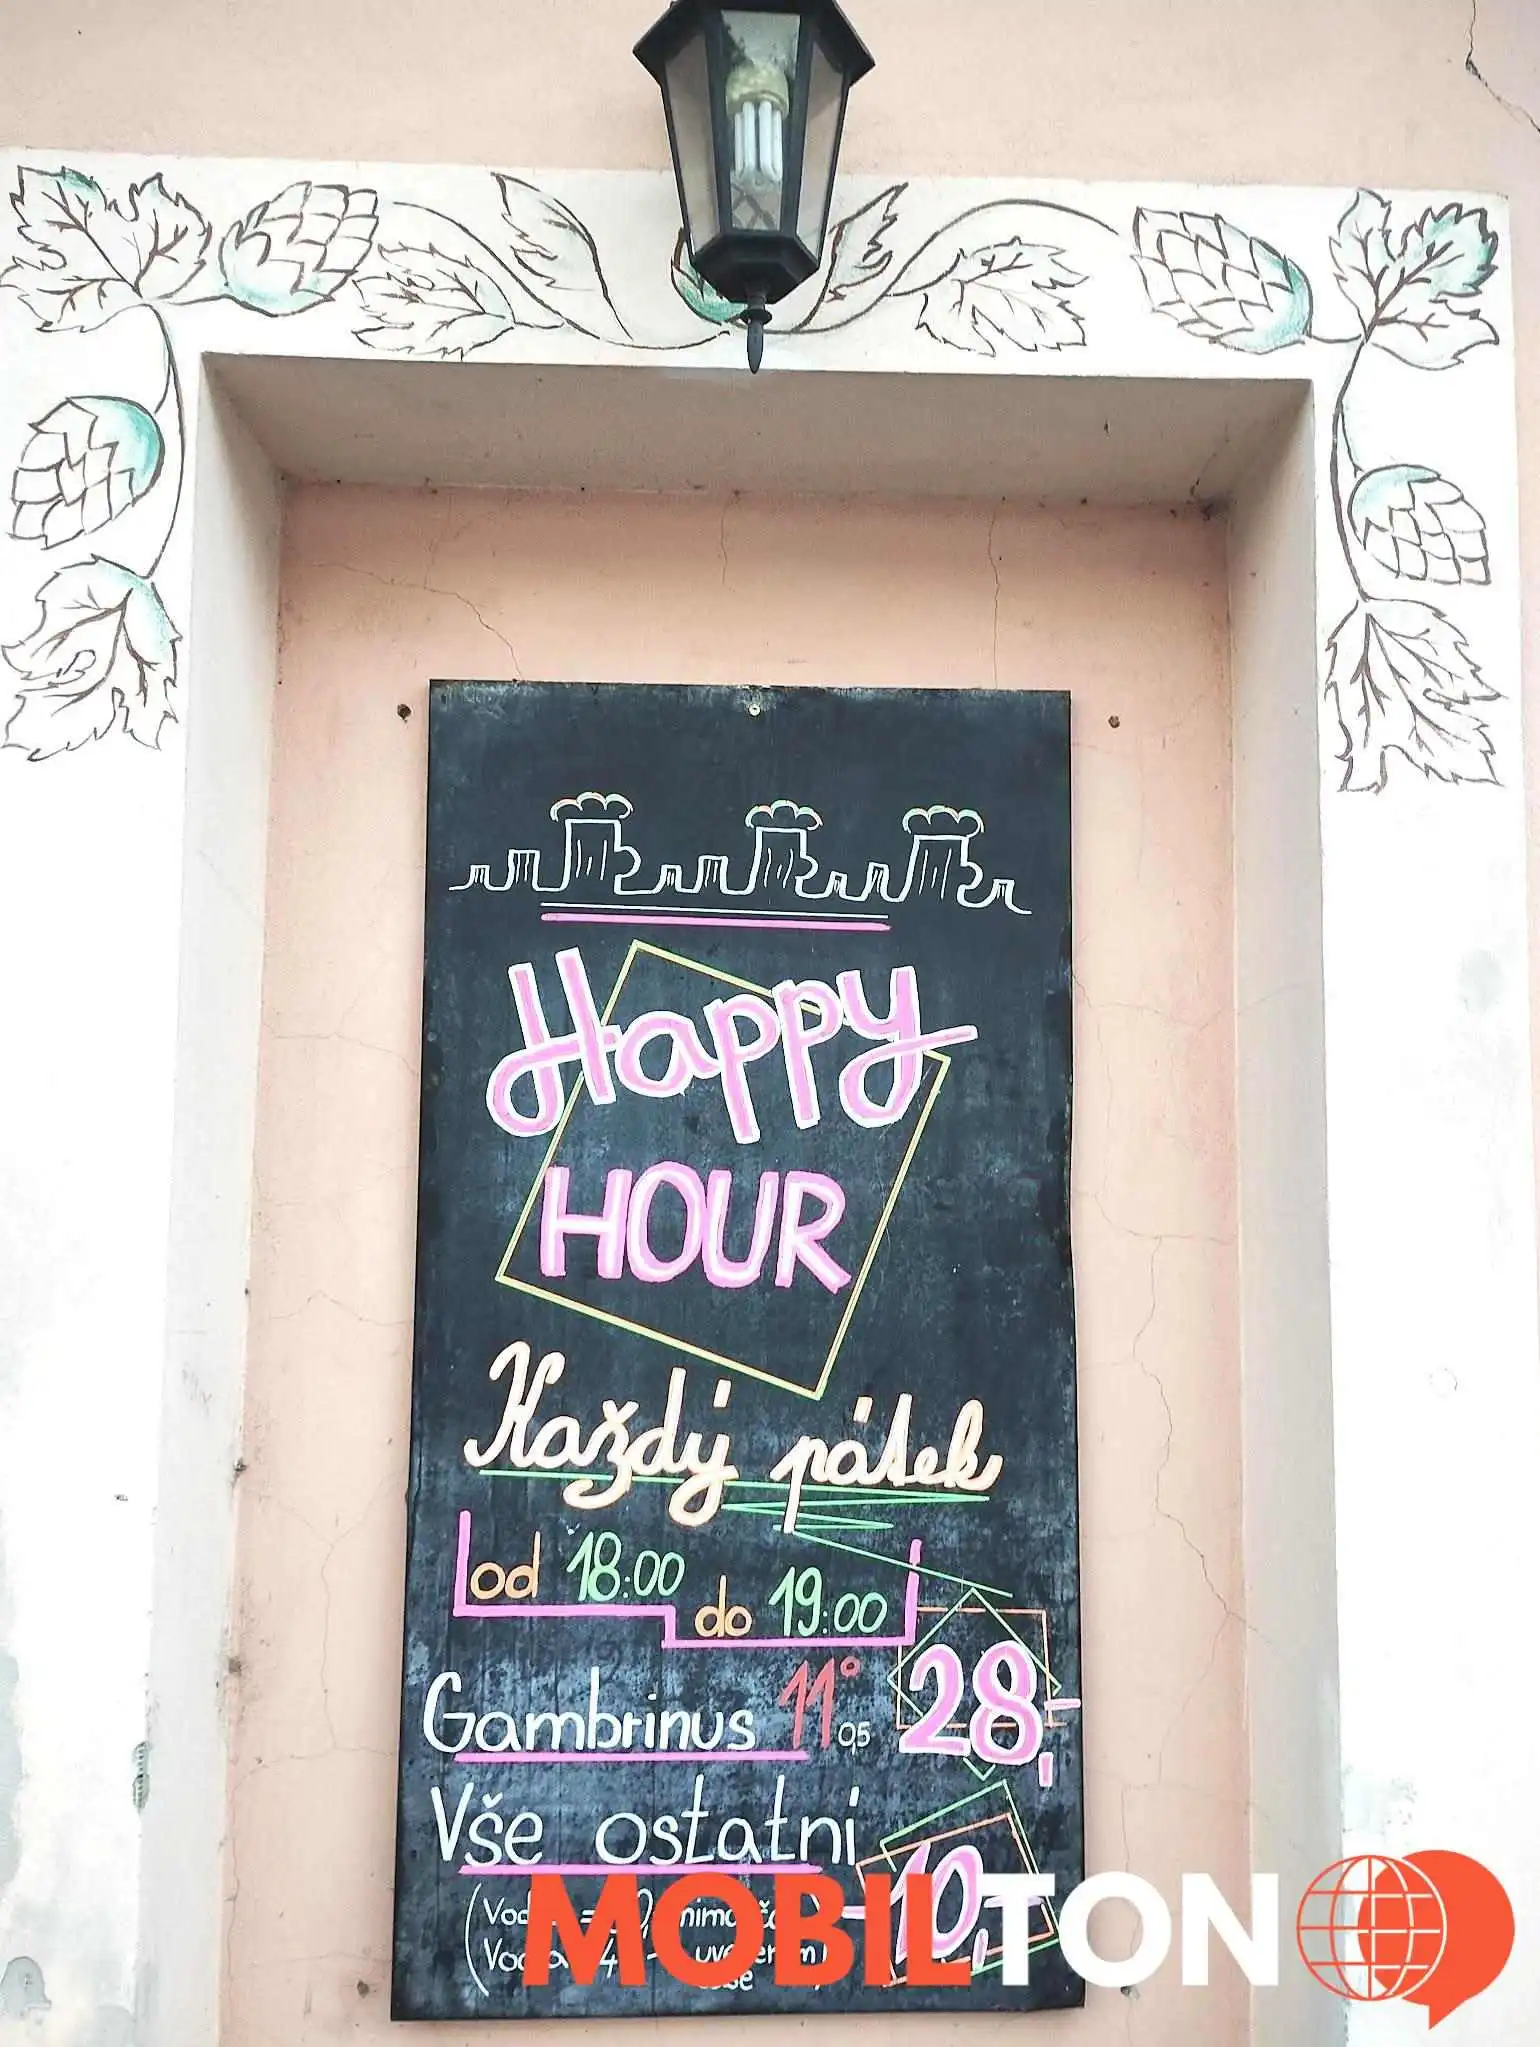 Happy
HOUR
Každý pátek
od 18:00 do 19:00
Gambrinus 11° 0,5 28,-
Vše ostatní -10,-
MOBILTON